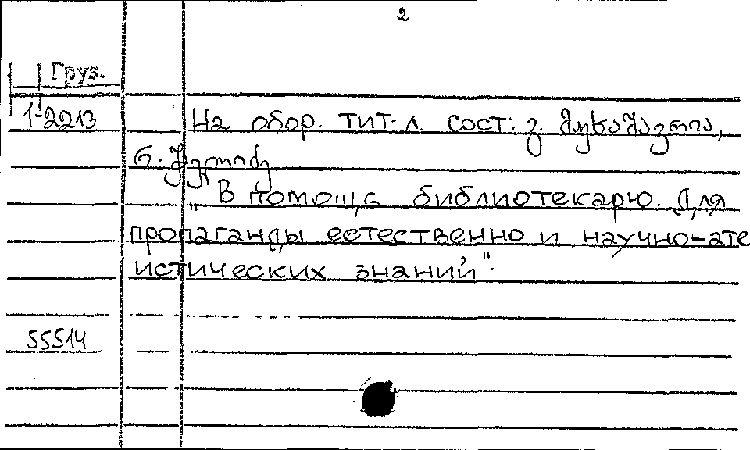 2
Груз.
1-2213
На обор. тит. л. сост:
"В помощь библиотекарю. Для
пропаганды естественно и научно-ате
истических знаний".
55514